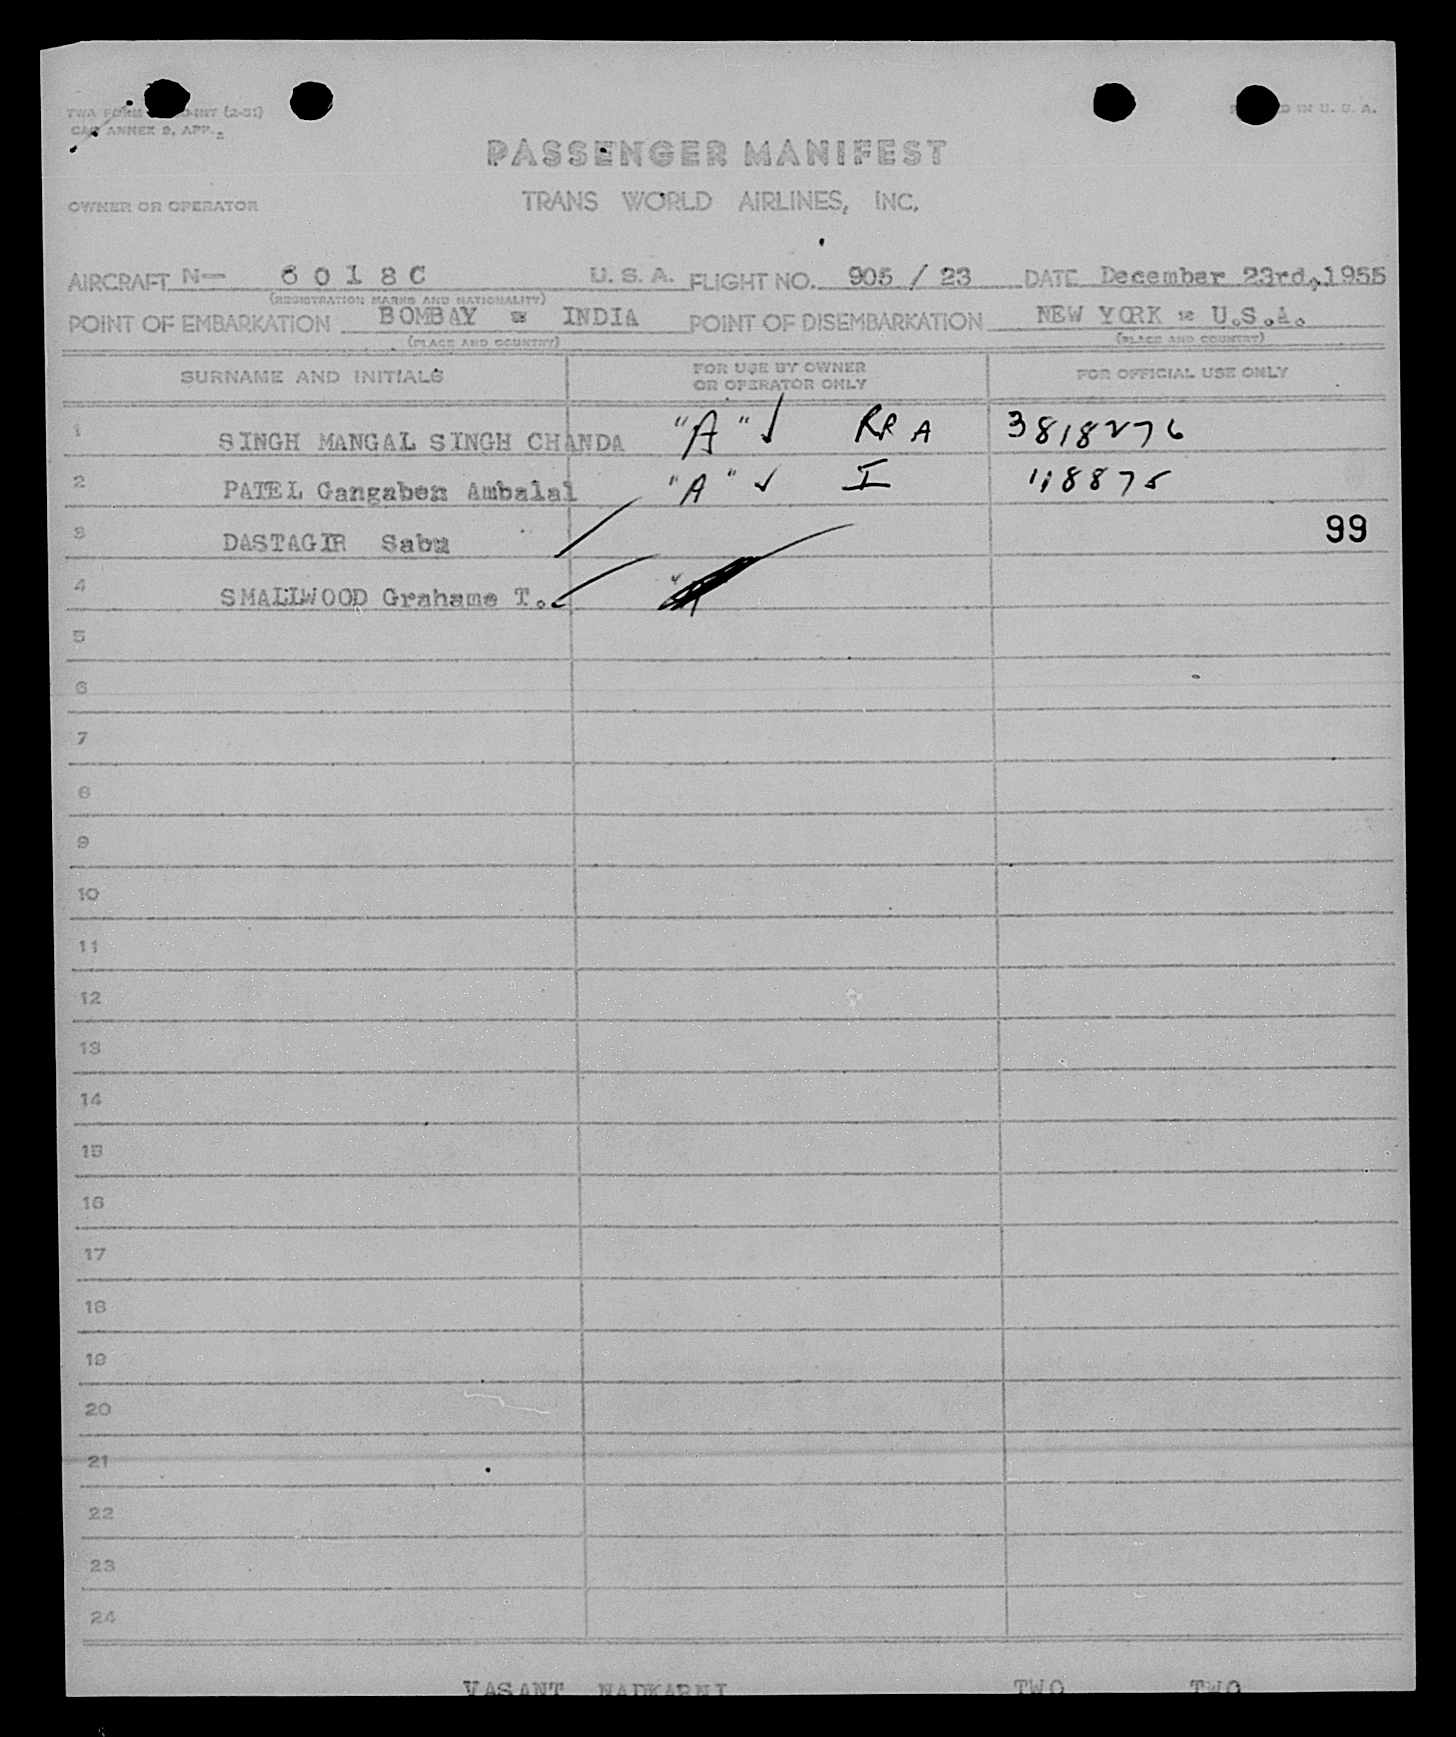 TWA FORM INT (2-51) PRINTED IN U. S. A.
CAB ANNEX 9, APP.
PASSENGER MANIFEST
OWNER OR OPERATOR TRANS WORLD AIRLINES, INC.
AIRCRAFT N— 6 0 1 8 C U. S. A. FLIGHT NO. 905 / 23 DATE December 23rd, 1955
(REGISTRATION MARKS AND NATIONALITY)
POINT OF EMBARKATION BOMBAY - INDIA POINT OF DISEMBARKATION NEW YORK - U.S.A.
(PLACE AND COUNTRY) (PLACE AND COUNTRY)
SURNAME AND INITIALS FOR USE BY OWNER OR OPERATOR ONLY FOR OFFICIAL USE ONLY
1 SINGH MANGAL SINGH CHANDA "A" ✓ RRA 3818276
2 PATEL Gangaben Ambalal "A" ✓ I 118875
3 DASTAGIR Sabu 99
4 SMALLWOOD Grahame T.
5
6
7
8
9
10
11
12
13
14
15
16
17
18
19
20
21
22
23
24
VASANT NADKARNI TWO TWO